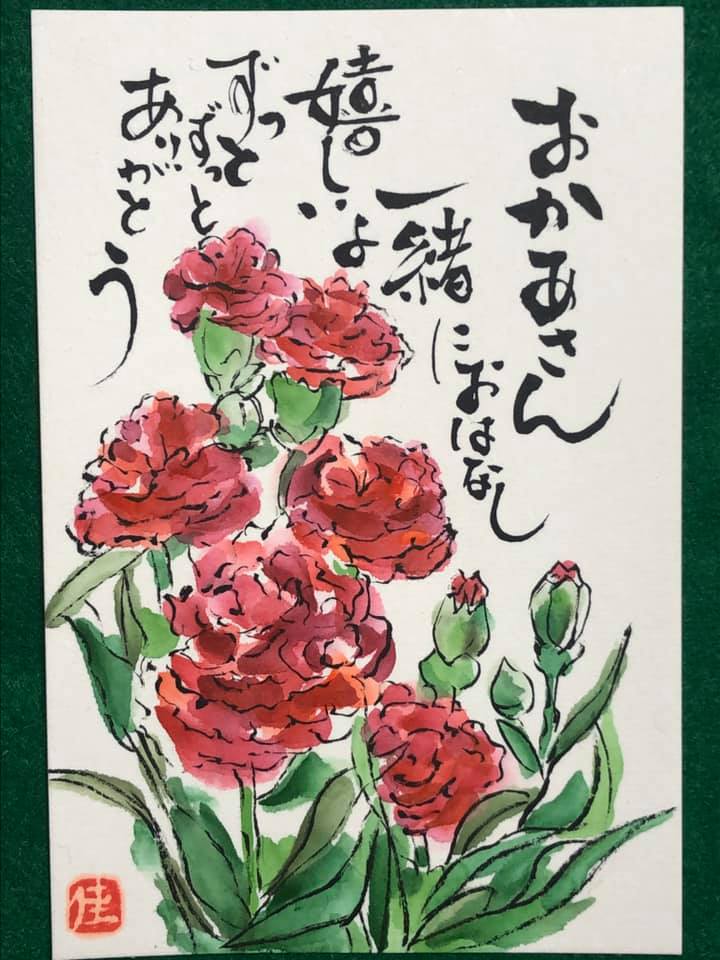 おかあさん
一緒におはなし
嬉しいよ
ずっと
ずっと
ありがとう
佳